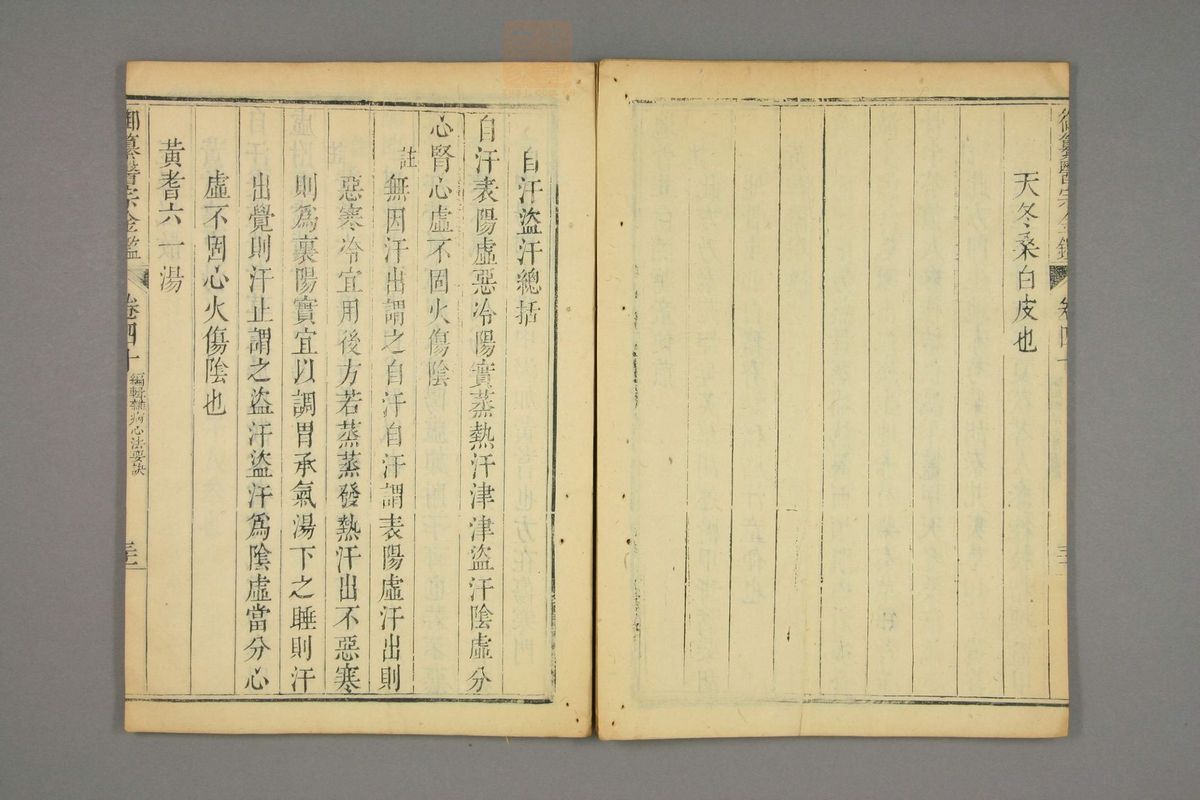 天冬桑白皮也
自汗盜汗總括
自汗表陽虛惡冷陽實蒸熱汗津津盜汗陰虛分
心腎心虛不固火傷陰
註無因汗出謂之自汗自汗謂表陽虛汗出則
惡寒冷宜用後方若蒸蒸發熱汗出不惡寒
則爲裏陽實宜以調胃承氣湯下之睡則汗
出覺則汗止謂之盜汗盜汗爲陰虛當分心
虛不固心火傷陰也
黃耆六一湯
御纂醫宗金鑑 卷四十 編輯雜病心法要訣